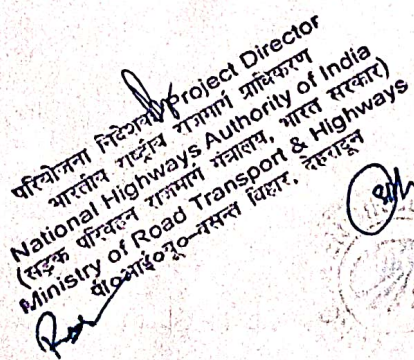 परियोजना निदेशक/Project Director
भारतीय राष्ट्रीय राजमार्ग प्राधिकरण
National Highways Authority of India
(सड़क परिवहन राजमार्ग मंत्रालय, भारत सरकार)
Ministry of Road Transport & Highways
पी०आई०यू०-वसन्त विहार, देहरादून